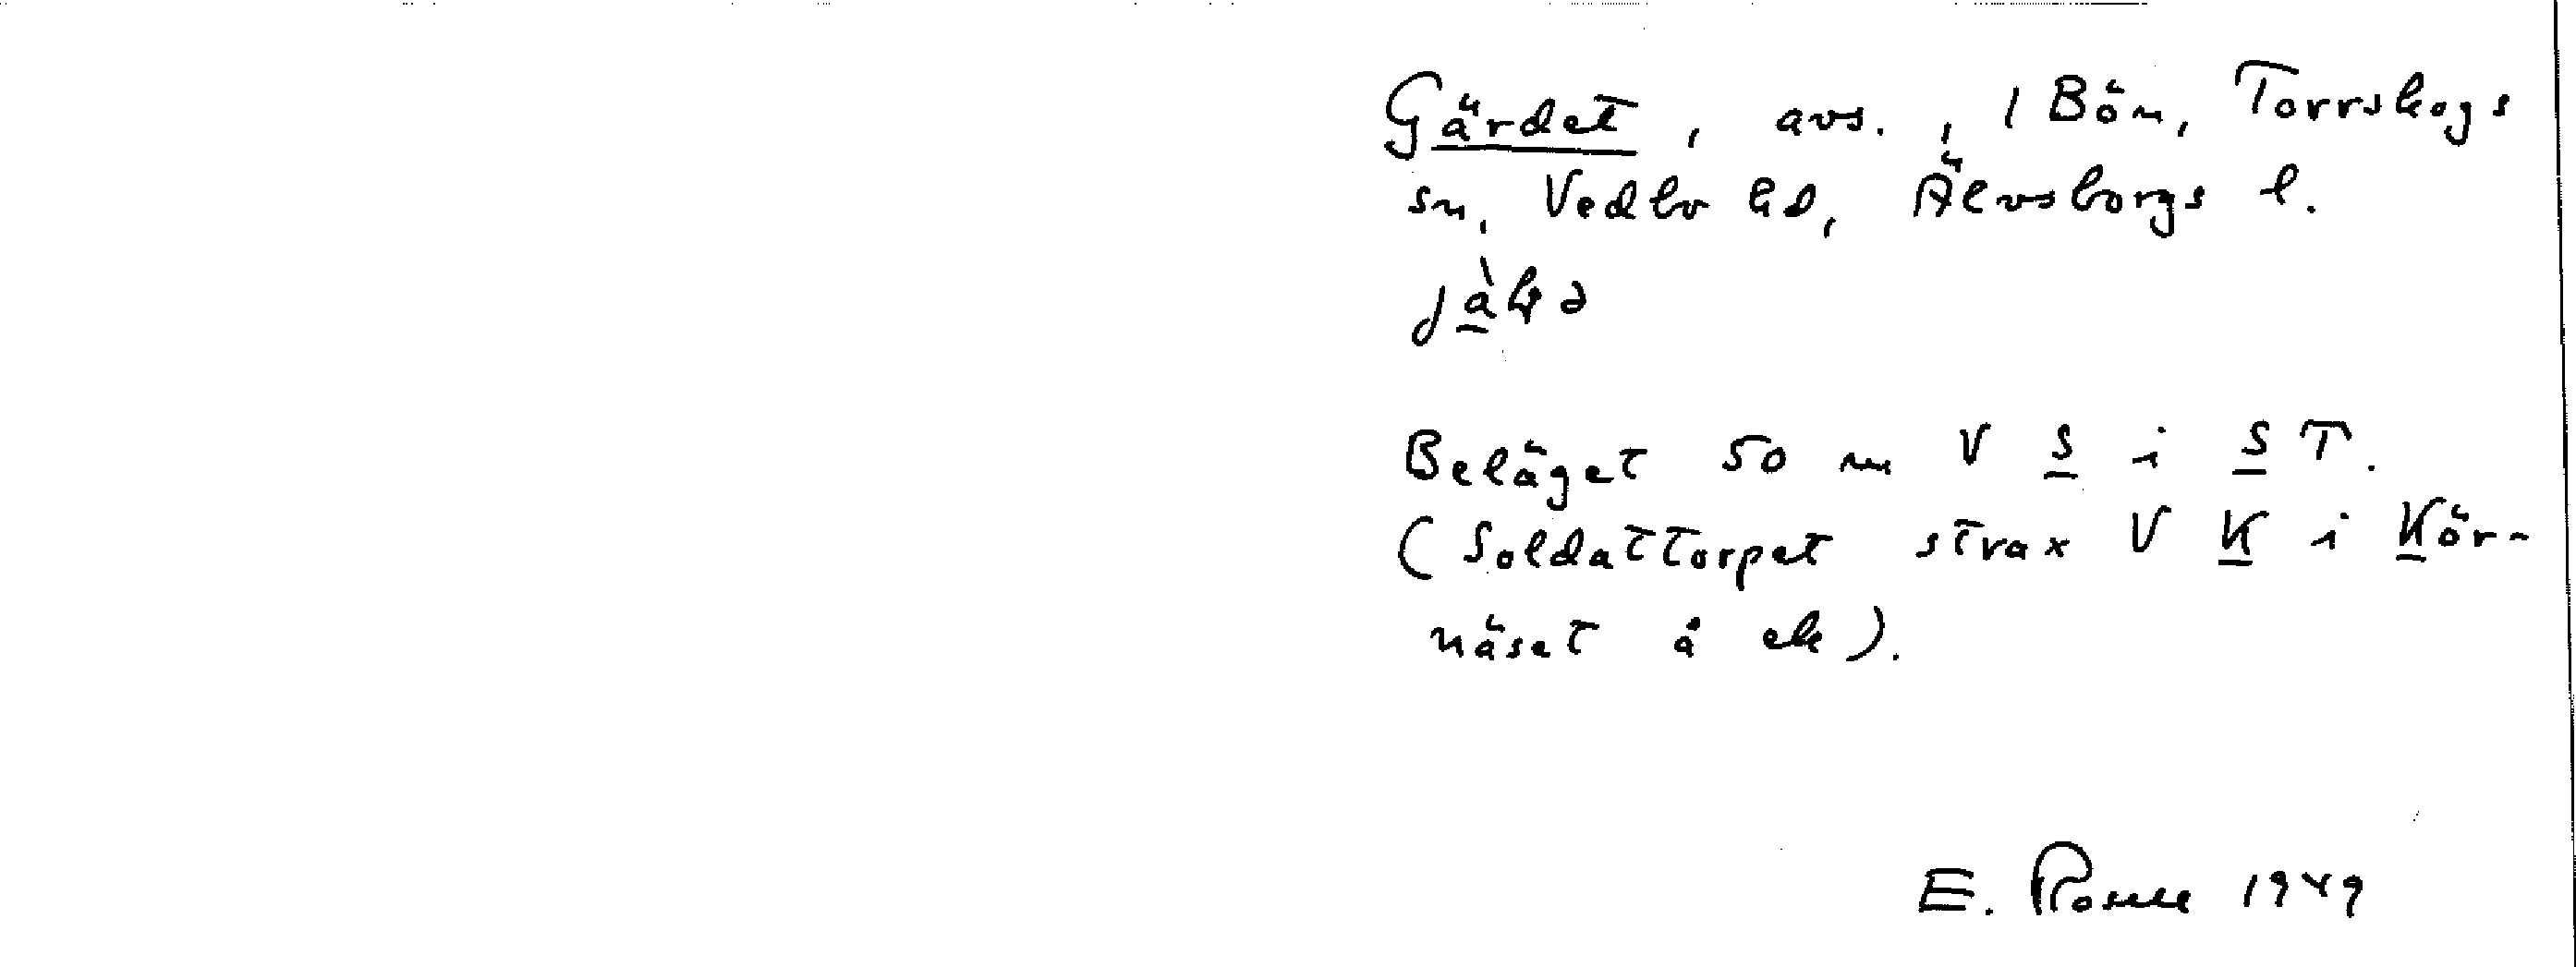 Gärdet, avs., 1 Bön, Torrskogs
sn, Vedbo hd, Älvsborgs l.
Beläget 50 m V S i ST.
(Soldattorpet strax V K i Kör-
näset å ek).
E. 1949